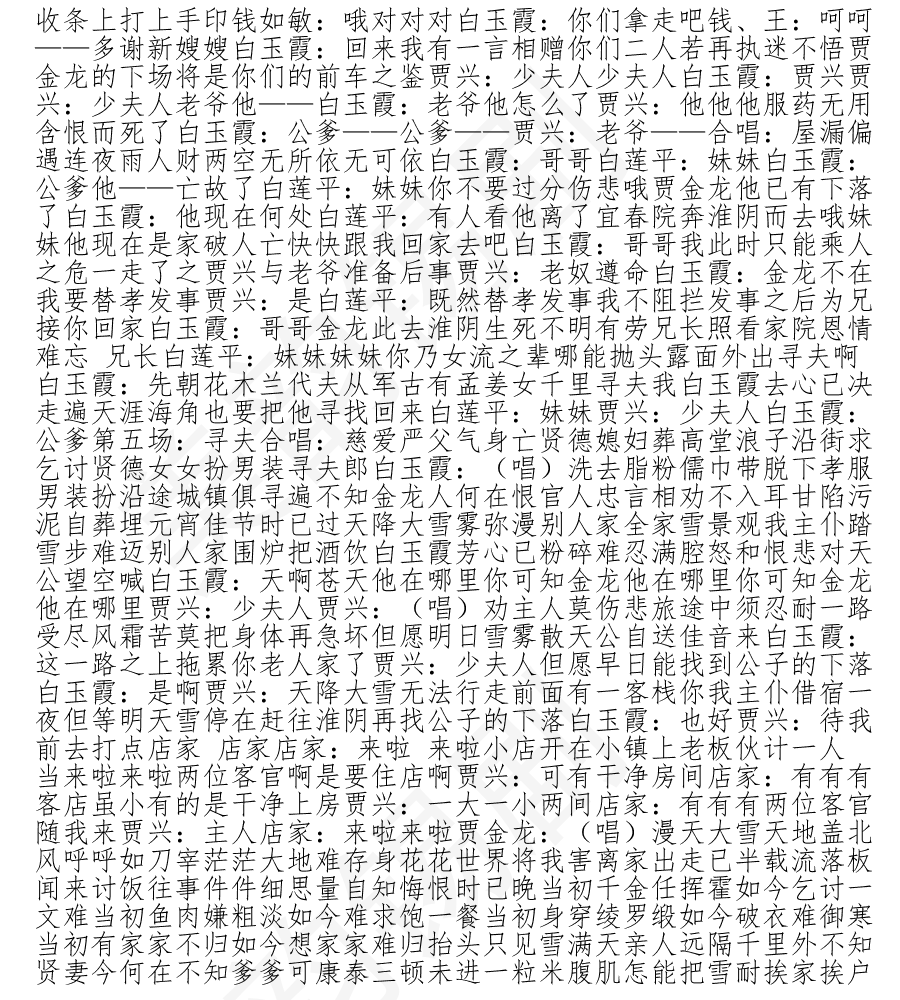 收条上打上手印钱如敏：哦对对对白玉霞：你们拿走吧钱、王：呵呵
——多谢新嫂嫂白玉霞：回来我有一言相赠你们二人若再执迷不悟贾
金龙的下场将是你们的前车之鉴贾兴：少夫人少夫人白玉霞：贾兴贾
兴：少夫人老爷他——白玉霞：老爷他怎么了贾兴：他他他服药无用
含恨而死了白玉霞：公爹——公爹——贾兴：老爷——合唱：屋漏偏
遇连夜雨人财两空无所依无可依白玉霞：哥哥白莲平：妹妹白玉霞：
公爹他——亡故了白莲平：妹妹你不要过分伤悲哦贾金龙他已有下落
了白玉霞：他现在何处白莲平：有人看他离了宜春院奔淮阴而去哦妹
妹他现在是家破人亡快快跟我回家去吧白玉霞：哥哥我此时只能乘人
之危一走了之贾兴与老爷准备后事贾兴：老奴遵命白玉霞：金龙不在
我要替孝发事贾兴：是白莲平：既然替孝发事我不阻拦发事之后为兄
接你回家白玉霞：哥哥金龙此去淮阴生死不明有劳兄长照看家院恩情
难忘 兄长白莲平：妹妹妹妹你乃女流之辈哪能抛头露面外出寻夫啊
白玉霞：先朝花木兰代夫从军古有孟姜女千里寻夫我白玉霞去心已决
走遍天涯海角也要把他寻找回来白莲平：妹妹贾兴：少夫人白玉霞：
公爹第五场：寻夫合唱：慈爱严父气身亡贤德媳妇葬高堂浪子沿街求
乞讨贤德女女扮男装寻夫郎白玉霞：（唱）洗去脂粉儒巾带脱下孝服
男装扮沿途城镇俱寻遍不知金龙人何在恨官人忠言相劝不入耳甘陷污
泥自葬埋元宵佳节时已过天降大雪雾弥漫别人家全家雪景观我主仆踏
雪步难迈别人家围炉把酒饮白玉霞芳心已粉碎难忍满腔怒和恨悲对天
公望空喊白玉霞：天啊苍天他在哪里你可知金龙他在哪里你可知金龙
他在哪里贾兴：少夫人贾兴：（唱）劝主人莫伤悲旅途中须忍耐一路
受尽风霜苦莫把身体再急坏但愿明日雪雾散天公自送佳音来白玉霞：
这一路之上拖累你老人家了贾兴：少夫人但愿早日能找到公子的下落
白玉霞：是啊贾兴：天降大雪无法行走前面有一客栈你我主仆借宿一
夜但等明天雪停在赶往淮阴再找公子的下落白玉霞：也好贾兴：待我
前去打点店家 店家店家：来啦 来啦小店开在小镇上老板伙计一人
当来啦来啦两位客官啊是要住店啊贾兴：可有干净房间店家：有有有
客店虽小有的是干净上房贾兴：一大一小两间店家：有有有两位客官
随我来贾兴：主人店家：来啦来啦贾金龙：（唱）漫天大雪天地盖北
风呼呼如刀宰茫茫大地难存身花花世界将我害离家出走已半载流落板
闻来讨饭往事件件细思量自知悔恨时已晚当初千金任挥霍如今乞讨一
文难当初鱼肉嫌粗淡如今难求饱一餐当初身穿绫罗缎如今破衣难御寒
当初有家家不归如今想家家难归抬头只见雪满天亲人远隔千里外不知
贤妻今何在不知爹爹可康泰三顿未进一粒米腹肌怎能把雪耐挨家挨户